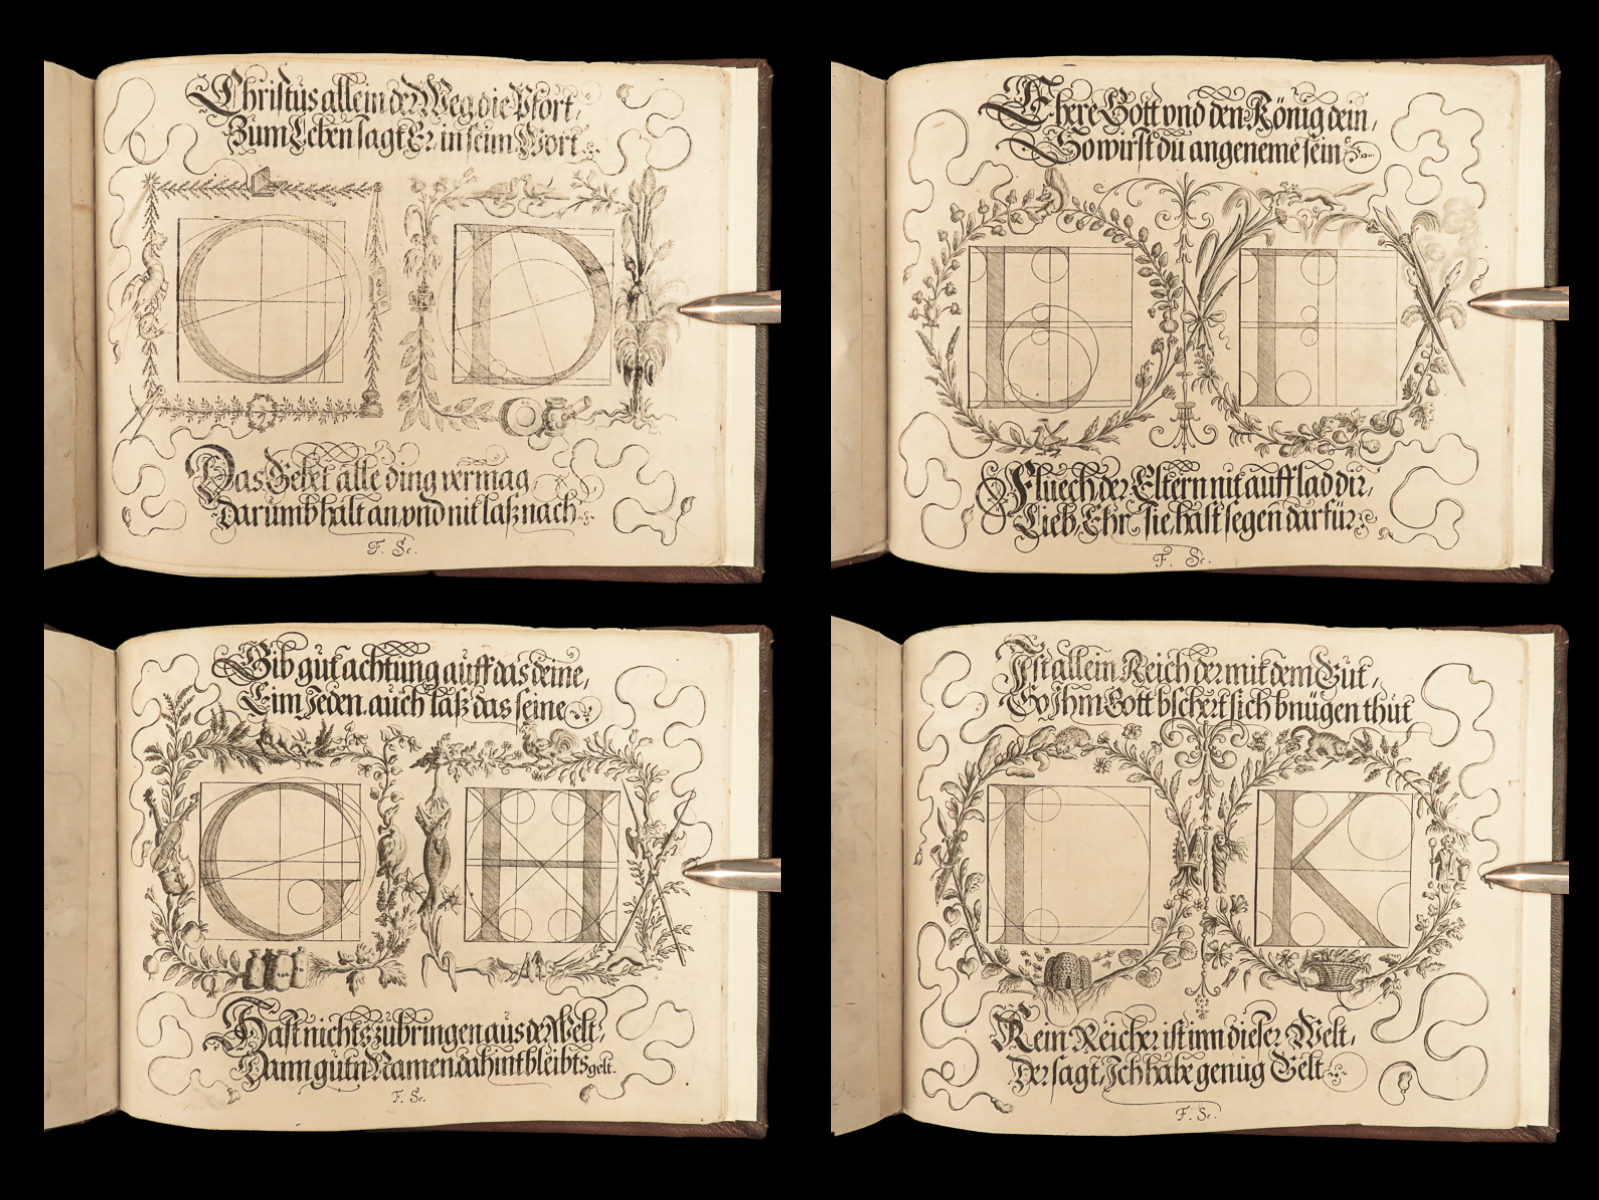 Christus allein der Weg, die Pfort,
Zum Leben sagt Er in seim Wort.
C D
Das Gebet alle ding vermag
Darumb halt an, vnd nit laß nach.
F. Sc.
Ehere Gott vnd den König dein,
So wirst du angeneme sein
E F
Fluech der Eltern nit auff lad dir,
Lieb, Ehr sie, hast segen darfür.
F. Sc.
Gib gut achtung auff das deine,
Eim Jeden auch laß das seine
G H
Hast nichts zubringen aus der Welt,
Dann gutn Namen dahint bleibts gelt.
F. Sc.
Ist allein Reich der mit dem Gut,
So Jhm Gott bschert sich bnügen thut
I K
Kein Reicher ist inn dieser Welt,
Der sagt, Ich habe genug Gelt
F. Sc.